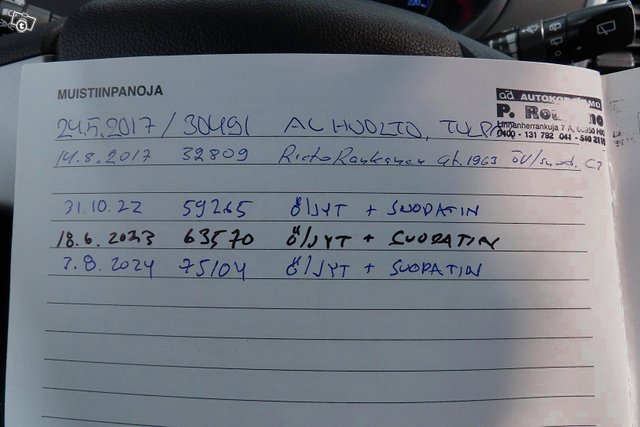 MUISTIINPANOJA
ad AUTOKORJAAMO
P.
7 A,
0400 - 131 792 044 -
24.5.2017 / 30491 AC HUOLTO,
14.8.2017 32809
31.10.22 59265 ÖLJYT + SUODATIN
18.6.2023 63570 ÖLJYT + SUODATIN
3.8.2024 75104 ÖLJYT + SUODATIN